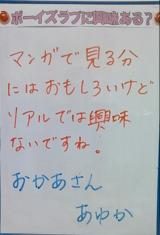 ボーイズラブに興味ある?
マンガで見る分
にはおもしろいけど
リアルでは興味
ないですね。
おかあさん
あゆか